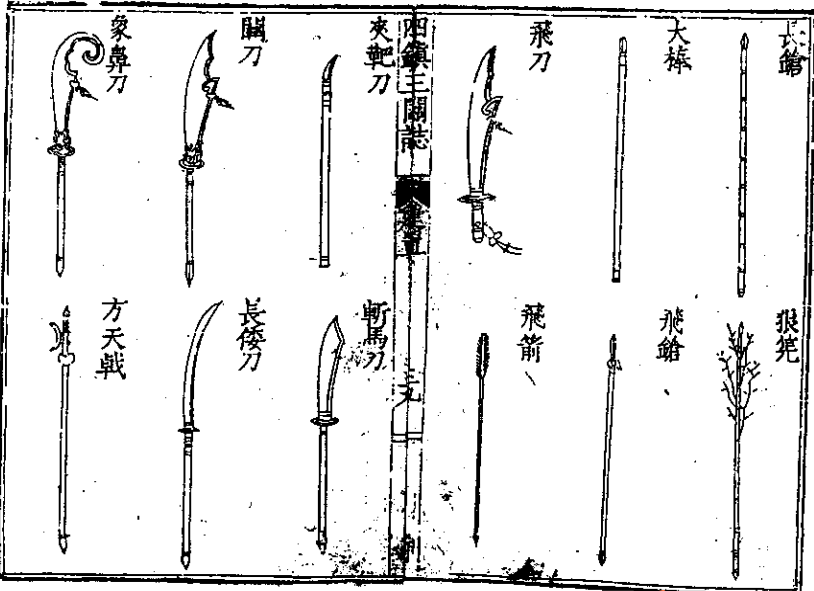 長鎗
大棒
飛刀
狼筅
飛鎗
飛箭
四鎮三關誌
三九
夾靶刀
關刀
象鼻刀
斬馬刀
長倭刀
方天戟